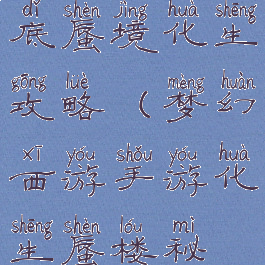 dǐ shèn jìng huà shēng
底蜃境化生
gōng lüè mèng huàn
攻略（梦幻
xī yóu shǒu yóu huà
西游手游化
shēng shèn lóu mì
生蜃楼秘